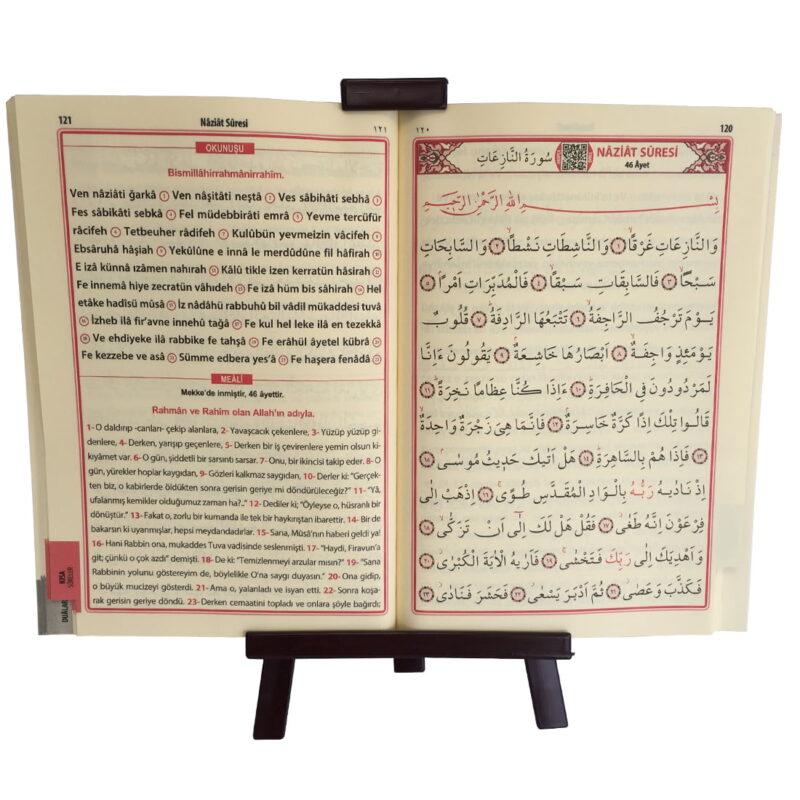 ١٢٠ 120
سُورَةُ النَّازِعَاتِ NÂZİÂT SÛRESİ
46 Âyet
بِسْمِ اللّٰهِ الرَّحْمٰنِ الرَّحِيمِ
وَالنَّازِعَاتِ غَرْقًاۙ ﴿١﴾ وَالنَّاشِطَاتِ نَشْطًاۙ ﴿٢﴾ وَالسَّابِحَاتِ
سَبْحًاۙ ﴿٣﴾ فَالسَّابِقَاتِ سَبْقًاۙ ﴿٤﴾ فَالْمُدَبِّرَاتِ اَمْرًاۢ ﴿٥﴾
يَوْمَ تَرْجُفُ الرَّاجِفَةُۙ ﴿٦﴾ تَتْبَعُهَا الرَّادِفَةُۜ ﴿٧﴾ قُلُوبٌ
يَوْمَئِذٍ وَاجِفَةٌۙ ﴿٨﴾ اَبْصَارُهَا خَاشِعَةٌۢ ﴿٩﴾ يَقُولُونَ ءَاِنَّا
لَمَرْدُودُونَ فِي الْحَافِرَةِۜ ﴿١٠﴾ ءَاِذَا كُنَّا عِظَامًا نَخِرَةًۜ ﴿١١﴾
قَالُوا تِلْكَ اِذًا كَرَّةٌ خَاسِرَةٌۢ ﴿١٢﴾ فَاِنَّمَا هِيَ زَجْرَةٌ وَاحِدَةٌۙ
﴿١٣﴾ فَاِذَا هُمْ بِالسَّاهِرَةِۜ ﴿١٤﴾ هَلْ اَتٰيكَ حَدِيثُ مُوسٰىۢ ﴿١٥﴾
اِذْ نَادٰيهُ رَبُّهُ بِالْوَادِ الْمُقَدَّسِ طُوًىۚ ﴿١٦﴾ اِذْهَبْ اِلٰى
فِرْعَوْنَ اِنَّهُ طَغٰىۘ ﴿١٧﴾ فَقُلْ هَلْ لَكَ اِلٰٓى اَنْ تَزَكّٰىۙ ﴿١٨﴾
وَاَهْدِيَكَ اِلٰى رَبِّكَ فَتَخْشٰىۚ ﴿١٩﴾ فَاَرٰيهُ الْاٰيَةَ الْكُبْرٰىۘ ﴿٢٠﴾
فَكَذَّبَ وَعَصٰىۘ ﴿٢١﴾ ثُمَّ اَدْبَرَ يَسْعٰىۘ ﴿٢٢﴾ فَحَشَرَ فَنَادٰىۘ ﴿٢٣﴾
121 Nâziât Sûresi ١٢١
OKUNUŞU
Bismillâhirrahmânirrahîm.
Ven nâziâti ğarkâ ① Ven nâşitâti neştâ ② Ves sâbihâti sebhâ ③
Fes sâbikâti sebkâ ④ Fel müdebbirâti emrâ ⑤ Yevme tercüfür
râcifeh ⑥ Tetbeuher râdifeh ⑦ Kulûbün yevmeizin vâcifeh ⑧
Ebsâruhâ hâşiah ⑨ Yekûlûne e innâ le merdûdûne fil hâfirah ⑩
E izâ künnâ ızâmen nahırah ⑪ Kâlû tikle izen kerratün hâsirah ⑫
Fe innemâ hiye zecratün vâhıdeh ⑬ Fe izâ hüm bis sâhirah ⑭ Hel
etâke hadîsü mûsâ ⑮ İz nâdâhü rabbuhû bil vâdil mükaddesi tuvâ
⑯ İzheb ilâ fir'avne innehû tağâ ⑰ Fe kul hel leke ilâ en tezekkâ
⑱ Ve ehdiyeke ilâ rabbike fe tahşâ ⑲ Fe erâhül âyetel kübrâ ⑳
Fe kezzebe ve asâ ㉑ Sümme edbera yes'â ㉒ Fe haşera fenâdâ ㉓
MEÂLİ
Mekke'de inmiştir, 46 âyettir.
Rahmân ve Rahîm olan Allah'ın adıyla.
1- O daldırıp -canları- çekip alanlara, 2- Yavaşcacık çekenlere, 3- Yüzüp yüzüp gi-
denlere, 4- Derken, yarışıp geçenlere, 5- Derken bir iş çevirenlere yemin olsun ki
kıyamet var. 6- O gün, şiddetli bir sarsıntı sarsar. 7- Onu, bir ikincisi takip eder. 8- O
gün, yürekler hoplar kaygıdan, 9- Gözleri kalkmaz saygıdan, 10- Derler ki: "Gerçek-
ten biz, o kabirlerde öldükten sonra gerisin geriye mi döndürüleceğiz?" 11- "Yâ,
ufalanmış kemikler olduğumuz zaman ha?.." 12- Dediler ki; "Öyleyse o, hüsranlı bir
dönüştür." 13- Fakat o, zorlu bir kumanda ile tek bir haykırıştan ibarettir. 14- Bir de
bakarsın ki uyanmışlar, hepsi meydandadırlar. 15- Sana, Mûsâ'nın haberi geldi ya!
16- Hani Rabbin ona, mukaddes Tuva vadisinde seslenmişti. 17- "Haydi, Firavun'a
git; çünkü o çok azdı" demişti. 18- De ki: "Temizlenmeyi arzular mısın?" 19- "Sana
Rabbinin yolunu göstereyim de, böylelikle O'na saygı duyasın." 20- Ona gidip,
o büyük mucizeyi gösterdi. 21- Ama o, yalanladı ve isyan etti. 22- Sonra koşa-
rak gerisin geriye döndü. 23- Derken cemaatini topladı ve onlara şöyle bağırdı;
KISA
SÛRELER
DUÂLAR